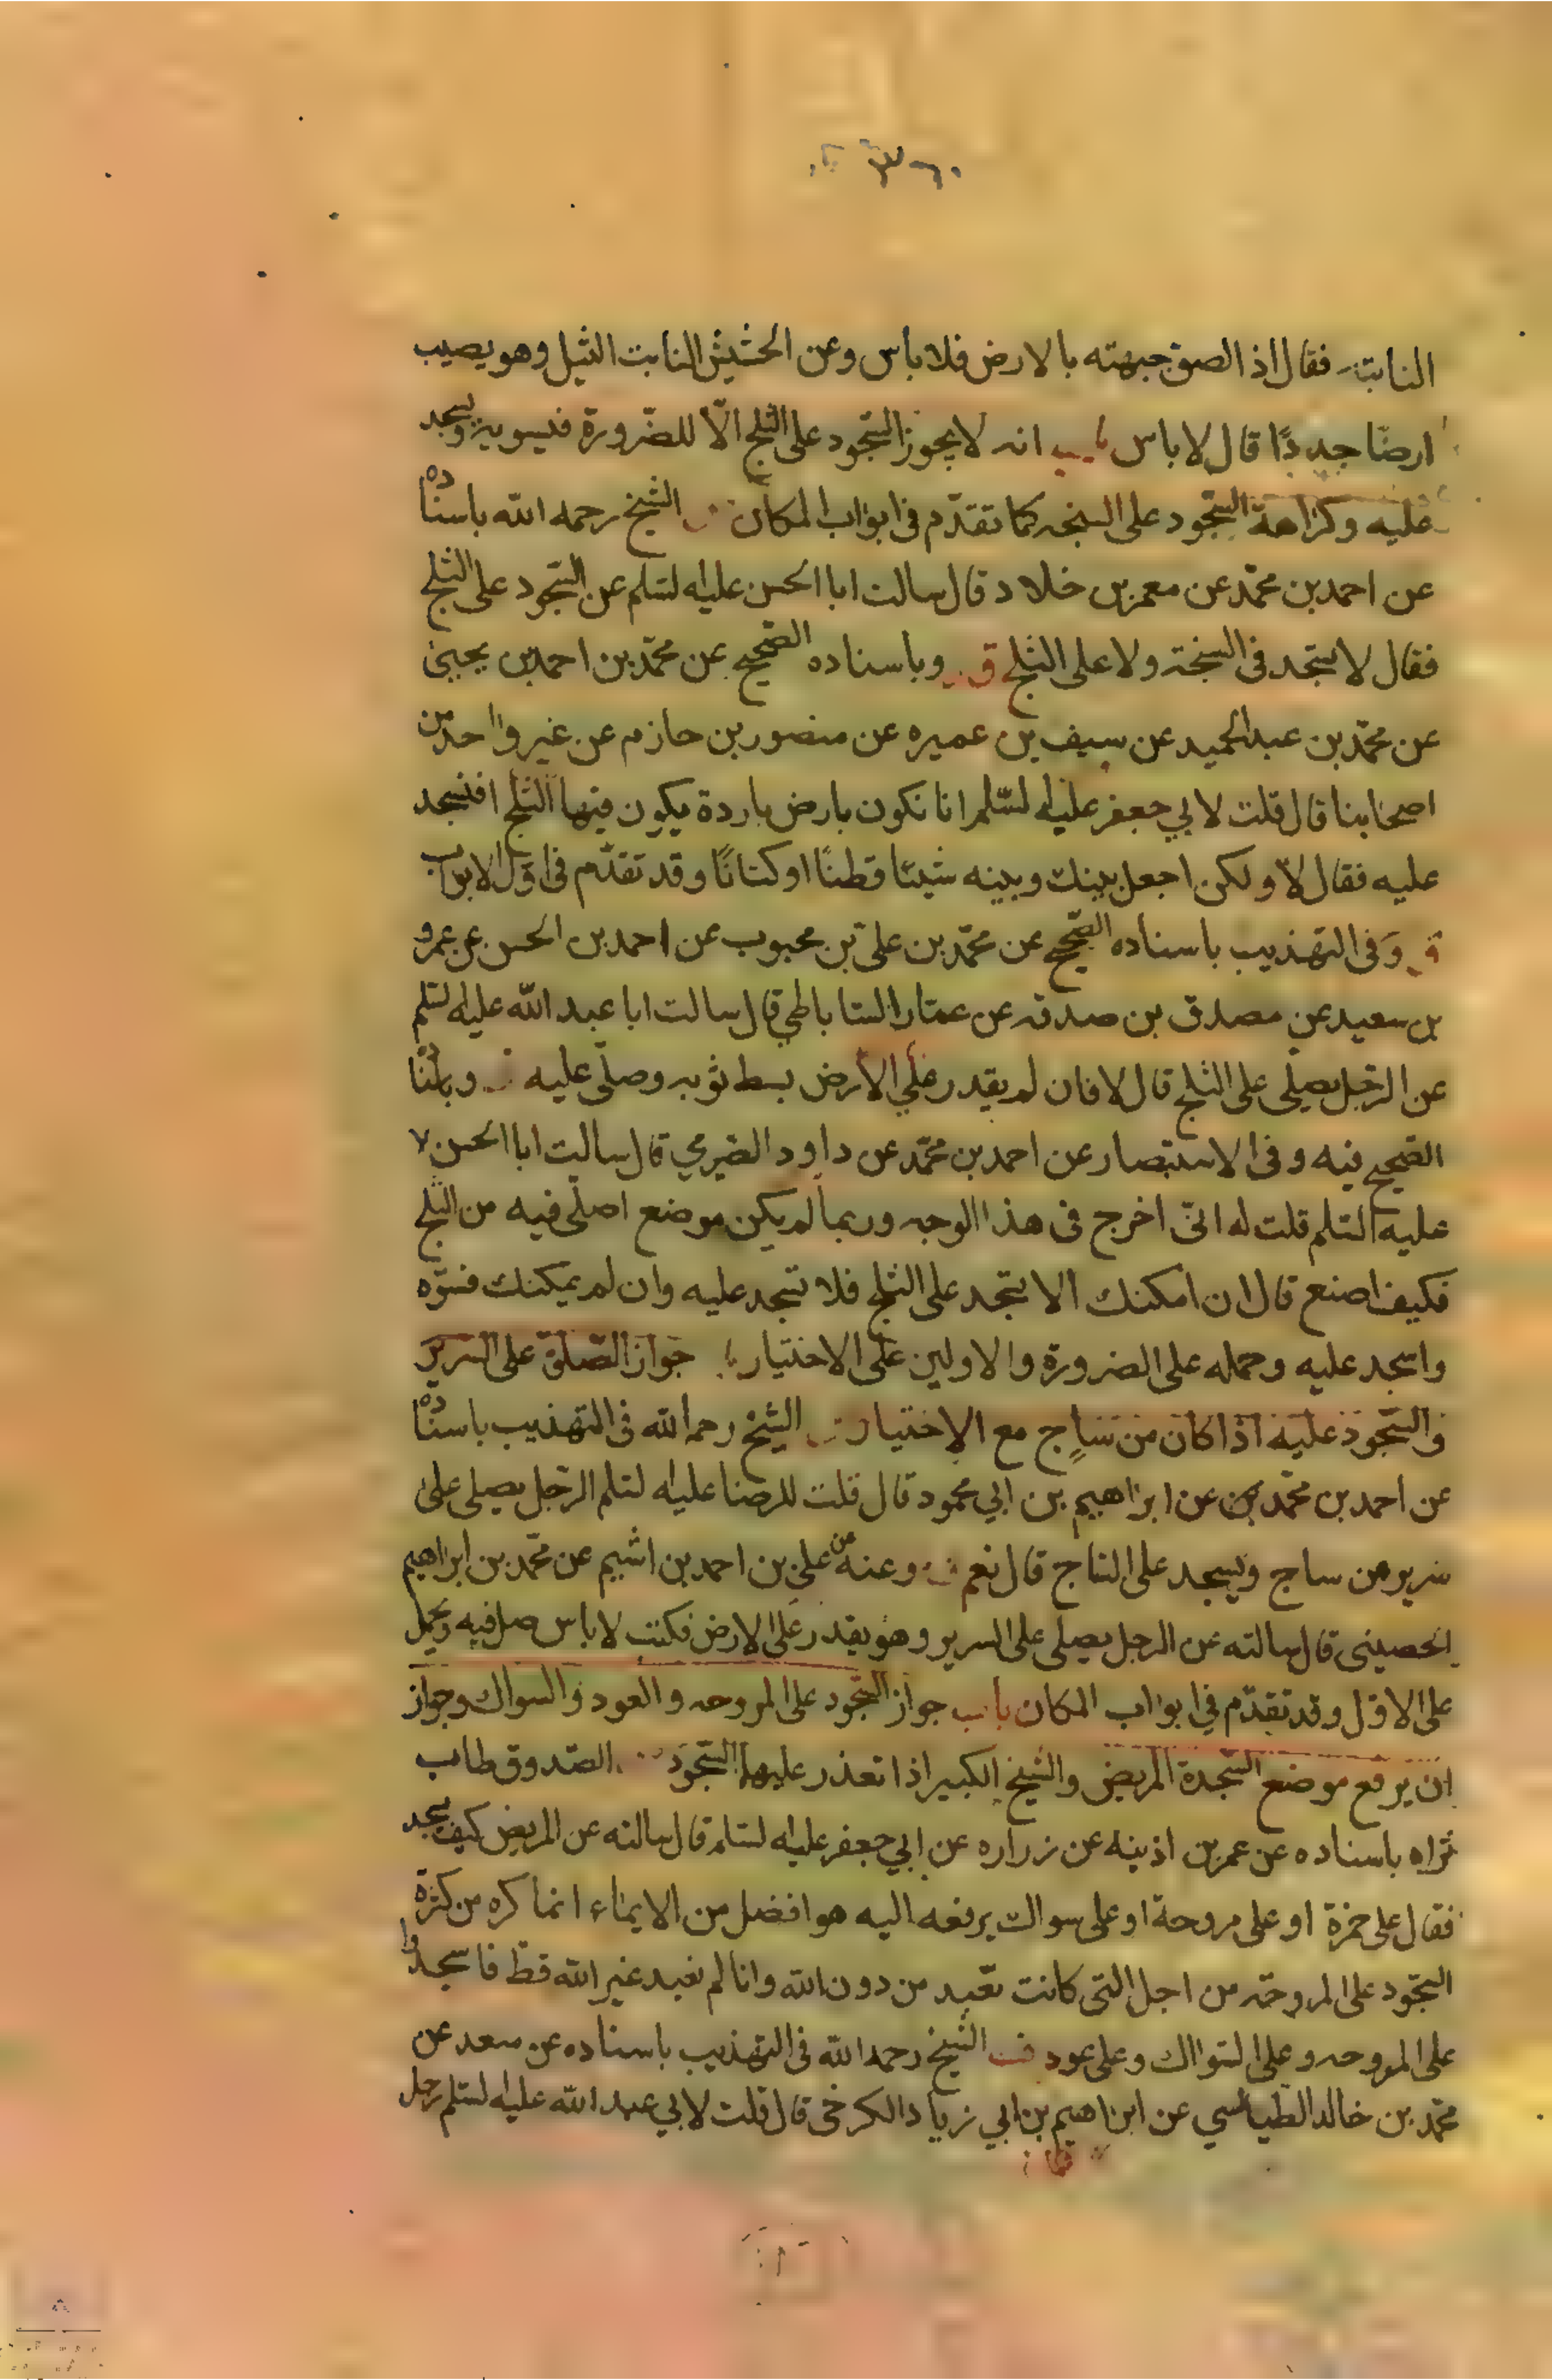 النابتة فقال اذ الصق جبهته بالارض فلا باس وعن الحشيش النابت الثيل وهو يصيب
ارضًا جددًا قال لا باس باب انه لا يجوز السّجود على الثلج الّا للضّرورة فيسويه ويسجد
عليه وكراهة السّجود على السبخه كما تقدّم فى ابواب المكان الشيخ رحمه الله باسناده
عن احمد بن محمّد عن معمر بن خلاد قال سالت ابا الحسن عليه السّلم عن السّجود على الثلج
فقال لا تسجد فى السبخة ولا على الثلج ق وباسناده الصّحيح عن محمّد بن احمد بن يحيى
عن محمّد بن عبد الحميد عن سيف بن عميره عن منصور بن حازم عن غير واحد من
اصحابنا قال قلت لابي جعفر عليه السّلم انا نكون بارض باردة يكون فيها الثلج افنسجد
عليه فقال لا ولكن اجعل بينك وبينه شيئا قطنًا او كتانًا وقد تقدّم فى اوّل الابواب
ق وفى التهذيب باسناده الصّحيح عن محمّد بن علىّ بن محبوب عن احمد بن الحسن عن عمرو
بن سعيد عن مصدق بن صدقه عن عمّار السّاباطي قال سالت ابا عبد الله عليه السّلم
عن الرّجل يصلّى على الثلج قال لا فان لم يقدر على الارض بسط ثوبه وصلّى عليه وباسناده
الصّحيح فيه وفى الاستبصار عن احمد بن محمّد عن داود الصّيرمي قال سالت ابا الحسن
عليه السّلم قلت له انّى اخرج فى هذا الوجه وربما لم يكن موضع اصلّى فيه من الثلج
فكيف اصنع قال ان امكنك الا تسجد على الثلج فلا تسجد عليه وان لم يمكنك فسوّه
واسجد عليه وحمله على الضرورة والاولين على الاختيار جواز الصّلوة على السرير
والسّجود عليه اذا كان من ساج مع الاختيار الشيخ رحمه الله فى التهذيب باسناده
عن احمد بن محمّد عن ابراهيم بن ابي محمود قال قلت للرضا عليه السّلم الرّجل يصلى على
سرير من ساج ويسجد على السّاج قال نعم وعنه عن علىّ بن احمد بن اشيم عن محمّد بن ابراهيم
الحصينى قال سالته عن الرجل يصلى على السرير وهو يقدر على الارض فكتب لا باس صل فيه ويحمل
على الاوّل وقد تقدّم في ابواب المكان باب جواز السّجود على المروحه والعود والسواك وجواز
ان يرفع موضع السّجدة المريض والشيخ الكبير اذا تعذر عليهما السّجود الصّدوق طاب
ثراه باسناده عن عمر بن اذينه عن زراره عن ابي جعفر عليه السّلم قال سالته عن المريض كيف يسجد
فقال على خمرة او على مروحة او على سواك يرفعه اليه هو افضل من الايماء انما كره من كره
السّجود على المروحة من اجل التى كانت تعبد من دون الله وانا لم نعبد غير الله قطّ فاسجدوا
على المروحه وعلى السّواك وعلى عود الشيخ رحمه الله فى التهذيب باسناده عن سعد عن
محمّد بن خالد الطّيالسي عن ابراهيم بن ابي زياد الكرخى قال قلت لابي عبد الله عليه السّلم رجل